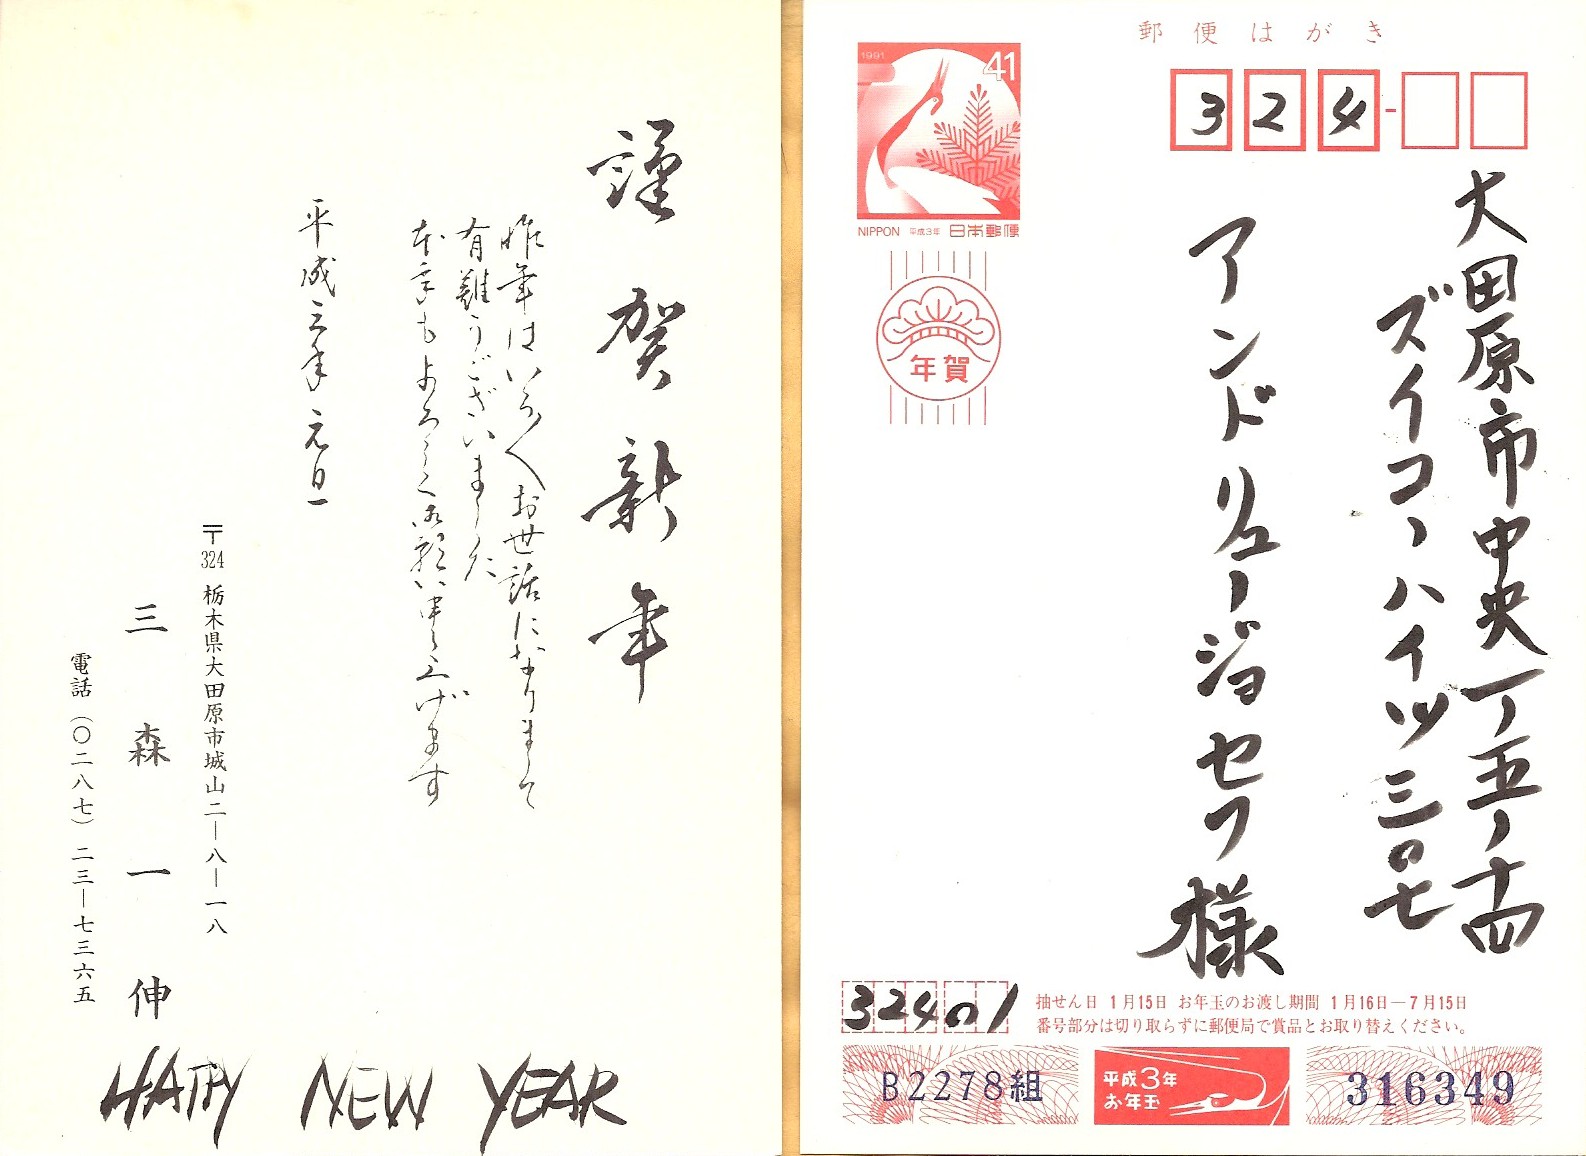 謹賀新年
昨年はいろ〱お世話になりまして
有難うございました
本年もよろしく御願い申し上げます
平成三年元旦
〒324 栃木県大田原市城山二―八―一八
三森一伸
電話(〇二八七)二三―七三六五
HAPPY NEW YEAR
郵便はがき
1991
41
NIPPON 平成3年 日本郵便
年賀
324
大田原市中央一ノ五ノ十四
ズイコーハイツ三〇七
アンドリュージョセフ様
32401
抽せん日 1月15日 お年玉のお渡し期間 1月16日―7月15日
番号部分は切り取らずに郵便局で賞品とお取り替えください。
B2278組
平成3年
お年玉
316349